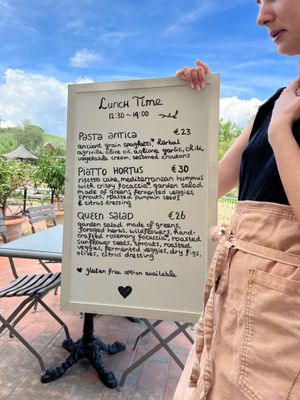 LUNCH TIME
12:30 - 14:00
PASTA ANTICA €23
ancient grain spaghetti, herbal
agrumix, olive oil, aglione garlic, chili,
vegetable cream, seasoned croutons
PIATTO HORTUS €30
risotto cake, mediterranean hummus
with crispy focaccia, garden salad
made of greens, fermented veggies,
sprouts, roasted pumpkin seeds
& citrus dressing
QUEEN SALAD €26
garden salad made of greens,
foraged herbs, wildflowers, hand-
crafted rosemary focaccia, roasted
sunflower seeds, sprouts, roasted
veggies, fermented veggies, dry figs,
olives, citrus dressing
gluten free option available